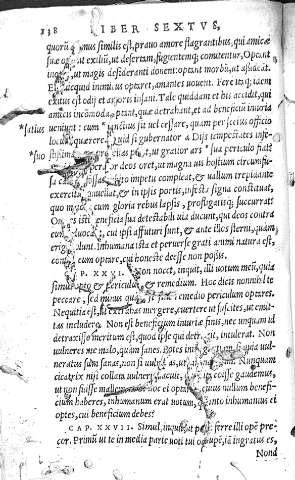 238 LIBER SEXTVS,
quorū animus similis est, prauo amore flagrantibus, qui amicæ
suæ optant exiliū, ut desertam, fugientemq; comitentur, Optant
inopiam, ut magis desideranti donent: optant morbū, ut assideāt.
Et quicquid inimicus optaret, amantes uouent. Fere itaq; idem
exitus est odij et amoris insani. Tale quiddam et his accidit, qui
amicis incōmoda optant, quæ detrahant, et ad beneficiū iniuria
*satius ueniunt: cum sanctius sit uel cessare, quam per scelus officio
locum quærere. Quid si gubernator à Dijs tempestates infe-
*suo stissimas
per deos oret, ut magna uis hostium circumfu-
sa castris fossas subito impetu compleat, & uallum trepidante
exercitu uellat, & in ipsis portis, infesta signa constituat,
quo maiore cum gloria rebus lapsis, profligatisq; succurrat?
Omnes isti beneficia sua detestabili uia ducunt, qui deos contra
eum aduocant, cui ipsi affuturi sunt, & ante illos sterni, quam
erigi uolunt. Inhumana ista et peruerse grati animi natura est,
contra eum optare, cui honeste deesse non possis.
CAP. XXVI. Non nocet, inquit, illi uotum meū, quia
simul opto & periculum & remedium. Hoc dicis nonnihil te
peccare, sed minus quàm si sine remedio periculum optares.
Nequitia est, ut extrahas mergere, euertere ut suscites, ut emit-
tas includere. Non est beneficium iniuriæ finis, nec unquam id
detraxisse meritum est, quod ipse qui detraxit, intulerat. Non
uulneres me malo, quàm sanes. Potes inire gratiam si quia uul-
neratus sum sanas, non si uulneras, ut sanandus sim. Nunquam
cicatrix nisi collata uulneri placuit, quod ita coisse gaudemus,
ut non fuisse mallemus. Si hoc ei optares, cuius nullum benefi-
cium haberes, inhumanum erat uotum, quanto inhumanius ei
optes, cui beneficium debes?
CAP. XXVII. Simul, inquit, ut possim ferre illi opē pre-
cor. Primū ut te in media parte uoti tui occupē, iā ingratus es,
Nond